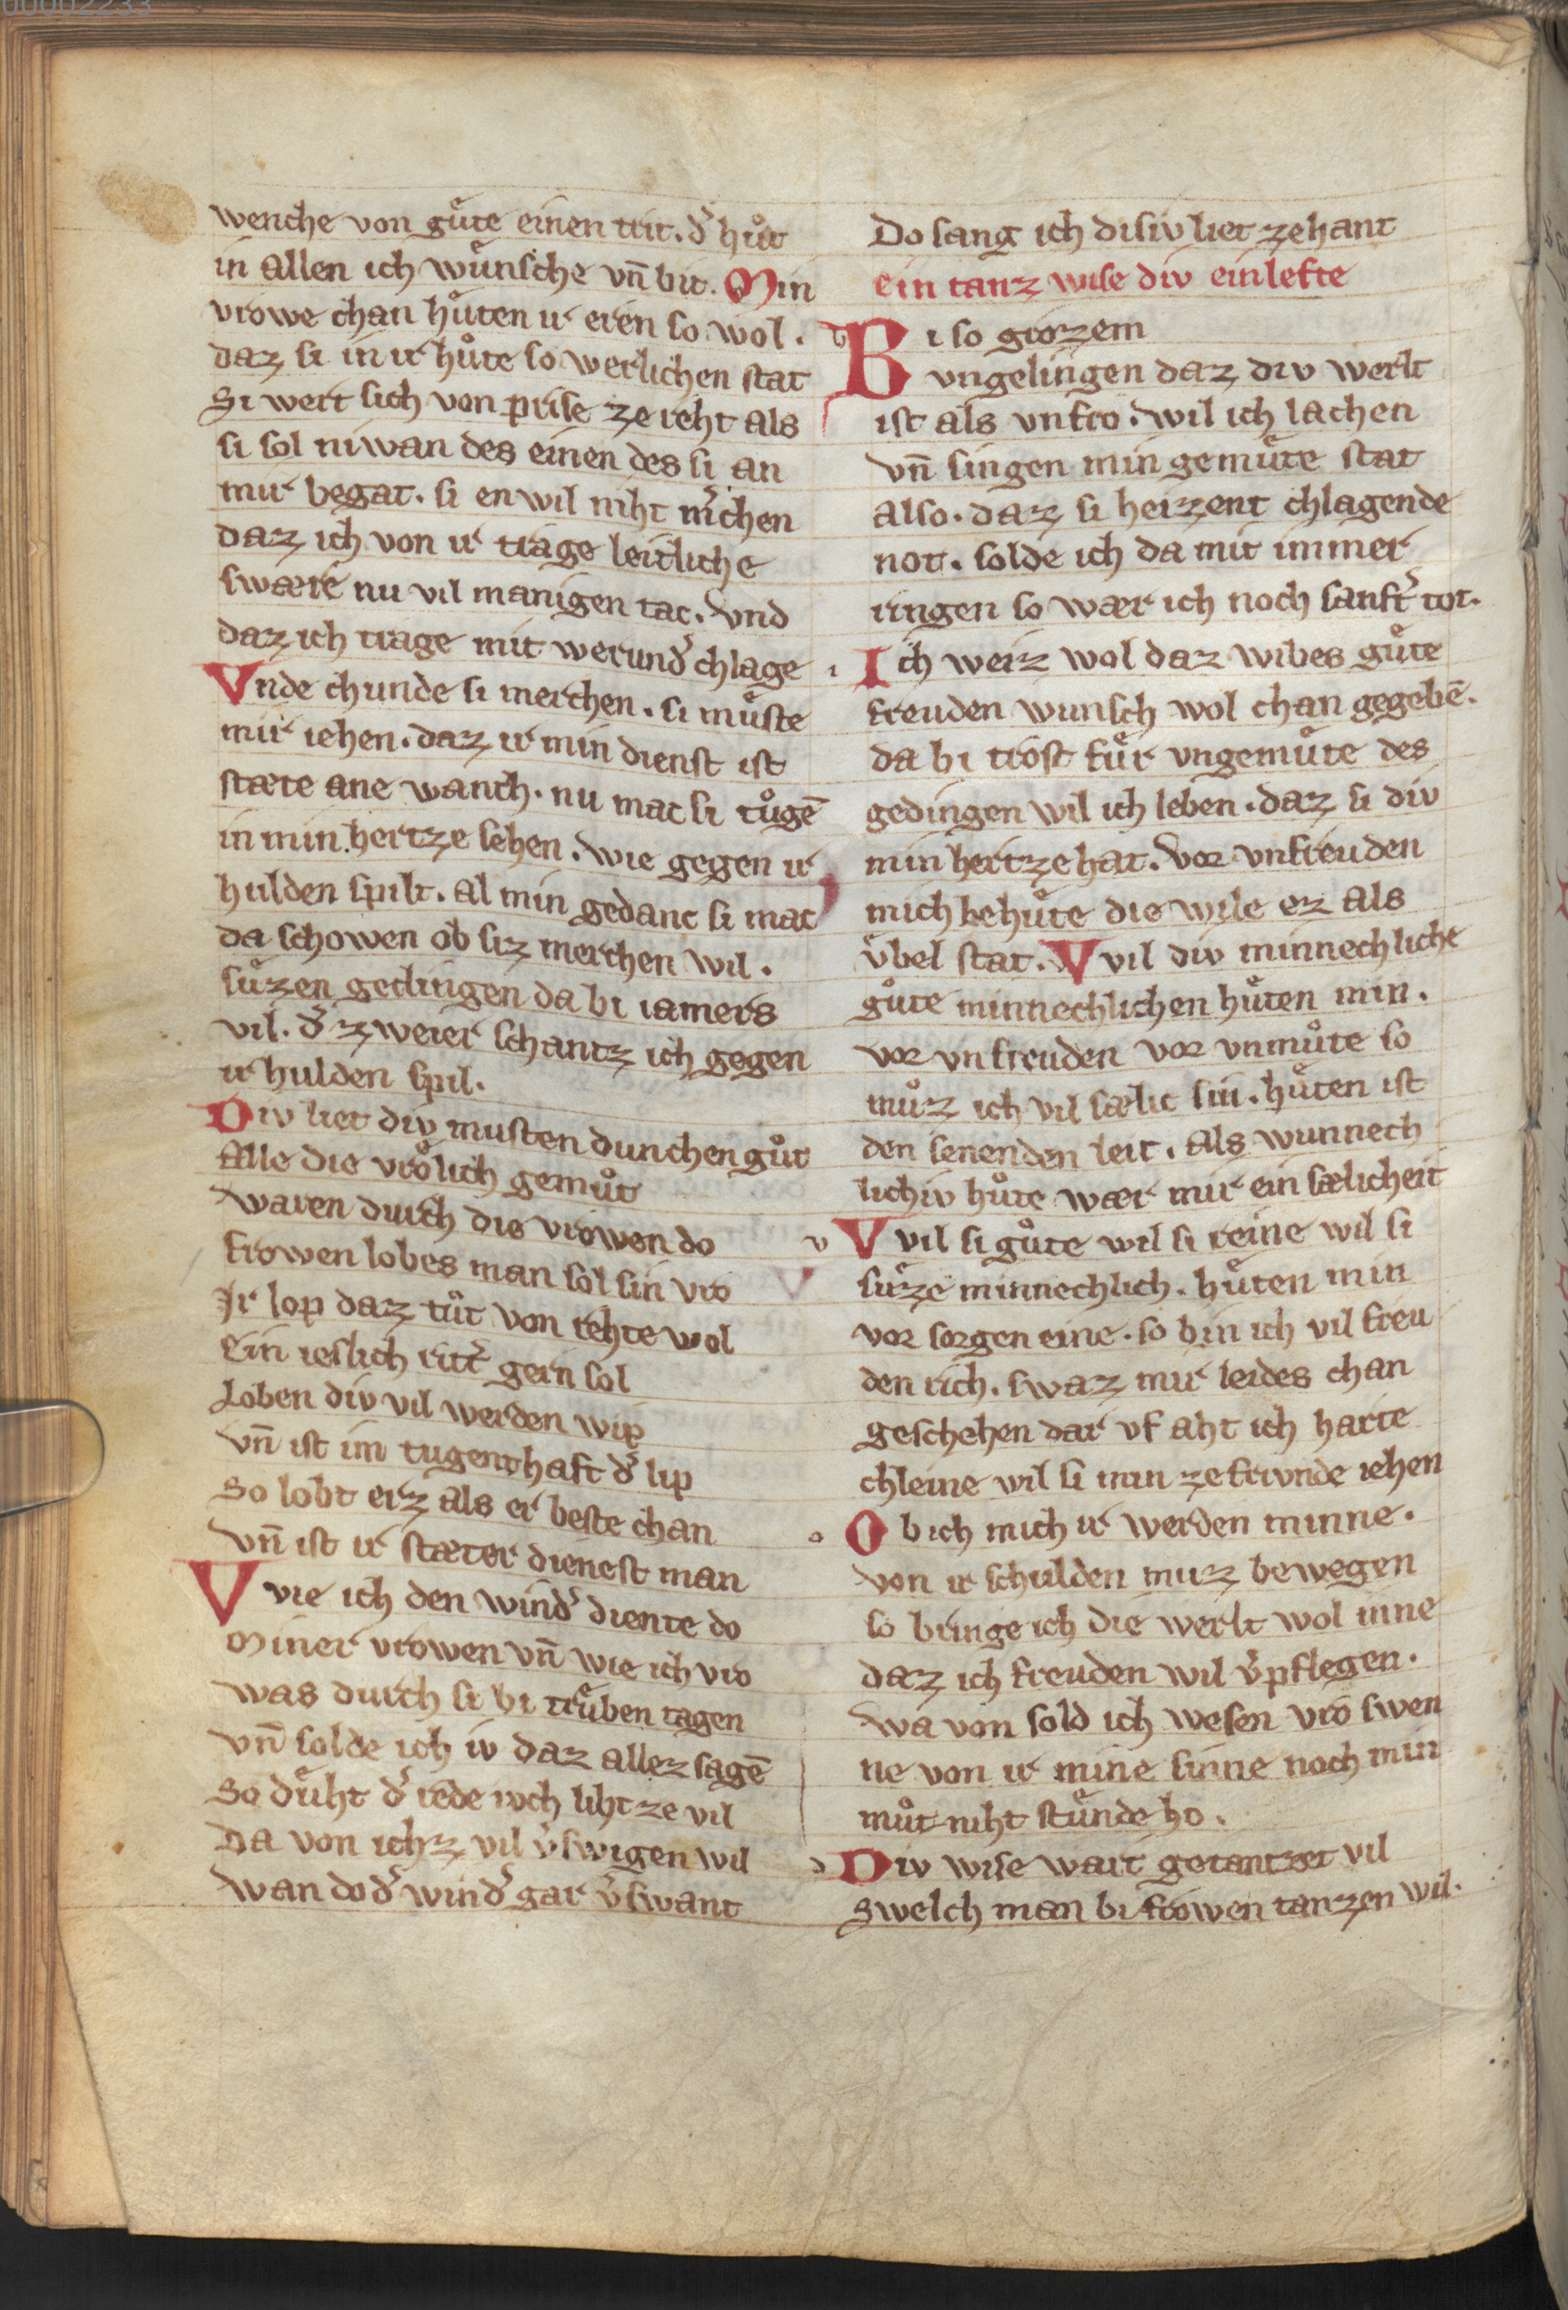 00002233
wenche von guͤte einen trit. d͛ huͦt
in allen ich wuͤnsche vn̄ bit. Min
vrowe chan huͤten ir eren so wol.
daz si in ir huͦte so werlichen stat
Si wert sich von prise ze reht als
si sol niwan des einen des si an
mir begat. si en wil niht m͛chen
daz ich von ir trage leitliche
swære nu vil manigen tac. vnd
daz ich trage mit werund͛ chlage
Vnde chunde si merchen. si muͤste
mir iehen. daz ir min dienst ist
stæte ane wanch. nu mac si tuͦgē
in min hertze sehen. wie gegen ir
hulden spilt. al min gedanc si mac
da schowen ob siz merchen wil.
suͤzen gedingen da bi iamers
vil. d͛ zweier schantz ich gegen
ir hulden spil.
Div liet div musten dunchen guͦt
Alle die vroͤlich gemuͦt
waren durch die vrowen do
frowen lobes man sol sin vro
Ir lop daz tuͦt von rehte wol
Ein ieslich ritt͛ gern sol
Loben div vil werden wip
vn̄ ist im tugenthaft d͛ lip
So lobt erz als er beste chan
vn̄ ist ir stæter dienest man
Vvie ich den wind͛ diente do
Miner vrowen vn̄ wie ich vro
was durch si bi truͤben tagen
vn̄ solde ich iv daz allez sagē
So duͤht d͛ rede ivch liht ze vil
Da von ichz vil v͛swigen wil
wan do d͛ wind͛ gar v͛swant
Do sang ich disiv liet zehant
ein tanz wise div einlefte
Bi so grozem
vngelingen daz div werlt
ist als vnfro. wil ich lachen
vn̄ singen min gemuͤte stat
also. daz si heizent chlagende
not. solde ich da mit immer
ringen so wær ich noch sanft͛ tot.
Ich weiz wol daz wibes guͤte
freuden wunsch wol chan gegebē.
da bi trost fuͤr vngemuͤte des
gedingen wil ich leben. daz si div
min hertze hat. vor vnfreuden
mich behuͤte die wile ez als
vͤbel stat. Vvil div minnechliche
guͦte minnechlichen huͤten min.
vor vnfreuden vor vnmuͦte so
muͦz ich vil sælic sin. huͤten ist
den senenden leit. als wunnech
lichiv huͦte wær mir ein sælicheit
Vvil si guͦte wil si reine wil si
suͤze minnechlich. huͤten min
vor sorgen eine. so bin ich vil freu
den rich. swaz mir leides chan
geschehen dar vf aht ich harte
chleine wil si min ze frivnde iehen
Ob ich mich ir werden minne.
von ir schulden muz bewegen
so bringe ich die werlt wol inne
daz ich freuden wil v͛pflegen.
wa von sold ich wesen vro swen
ne von ir mine sinne noch min
muͦt niht stuͤnde ho.
Div wise wart getantzet vil
Swelch man bi frowen tanzen wil.